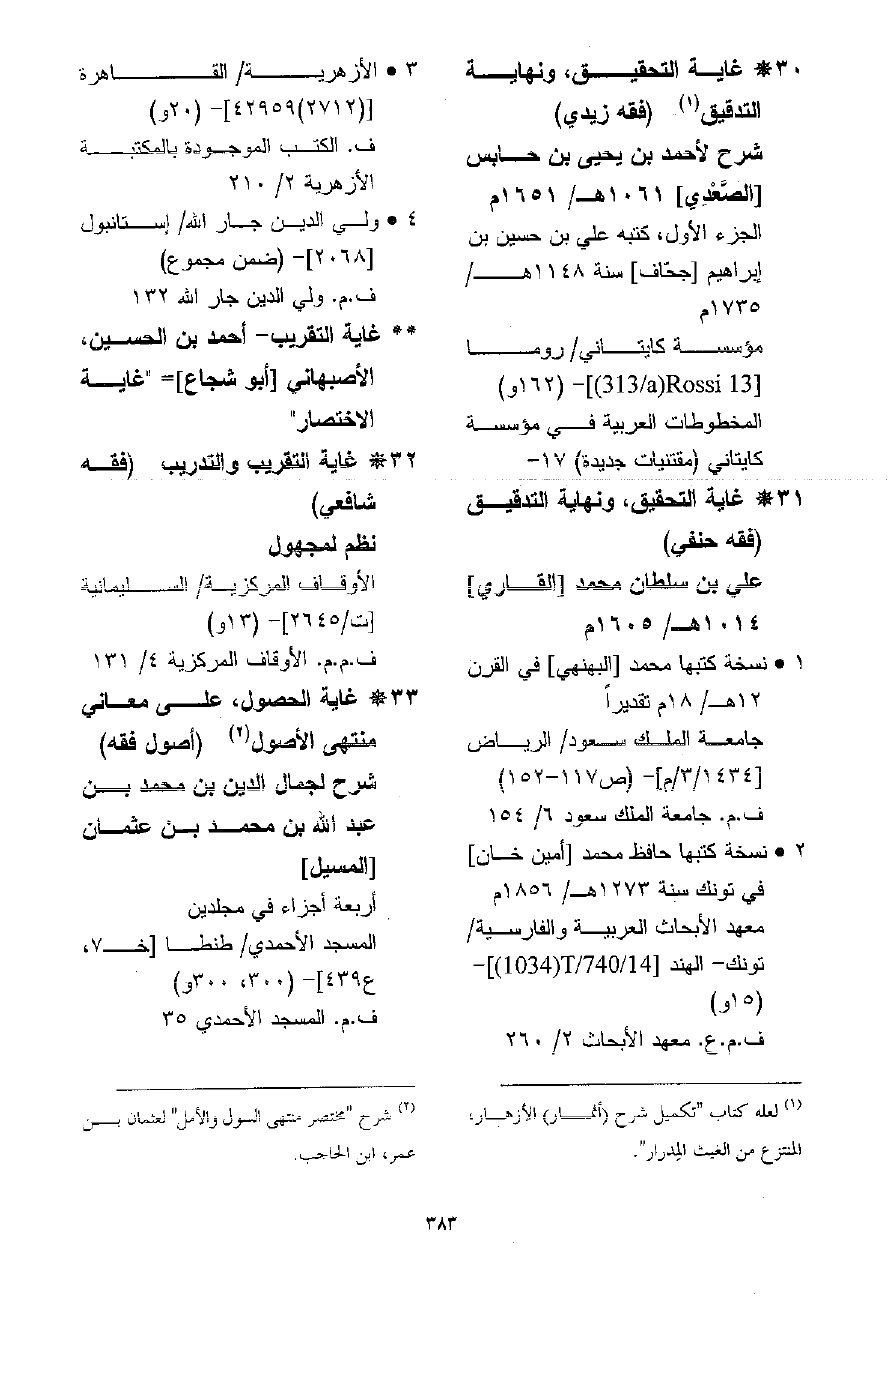 ٣٠* غاية التحقيق، ونهاية
التدقيق(١) (فقه زيدي)
شرح لأحمد بن يحيى بن حابس
[الصَّعْدِي] ١٠٦١هـ/ ١٦٥١م
الجزء الأول، كتبه علي بن حسين بن
إبراهيم [جحّاف] سنة ١١٤٨هـ/
١٧٣٥م
مؤسسة كايتاني/ روما
[(313/a)Rossi 13]- (١٦٢و)
المخطوطات العربية في مؤسسة
كايتاني (مقتنيات جديدة) ١٧-
٣١* غاية التحقيق، ونهاية التدقيق
(فقه حنفي)
علي بن سلطان محمد [القاري]
١٠١٤هـ/ ١٦٠٥م
١ • نسخة كتبها محمد [البهنهي] في القرن
١٢هـ/ ١٨م تقديراً
جامعة الملك سعود/ الرياض
[١٤٣٤/٣/م]- (ص١١٧-١٥٢)
ف.م. جامعة الملك سعود ٦/ ١٥٤
٢ • نسخة كتبها حافظ محمد [أمين خان]
في تونك سنة ١٢٧٣هـ/ ١٨٥٦م
معهد الأبحاث العربية والفارسية/
تونك- الهند [(1034)T/740/14]-
(١٥و)
ف.م.ع. معهد الأبحاث ٢/ ٢٦٠
(١) لعله كتاب "تكميل شرح (أثمار) الأزهار،
المنتزع من الغيث المدرار".
٣ • الأزهرية/ القاهرة
[(٢٧١٢)٤٢٩٥٩]- (٢٠و)
ف. الكتب الموجودة بالمكتبة
الأزهرية ٢/ ٢١٠
٤ • ولي الدين جار الله/ إستانبول
[٢٠٦٨]- (ضمن مجموع)
ف.م. ولي الدين جار الله ١٣٢
** غاية التقريب- أحمد بن الحسين،
الأصبهاني [أبو شجاع]= "غاية
الاختصار"
٣٢* غاية التقريب والتدريب (فقه
شافعي)
نظم لمجهول
الأوقاف المركزية/ السليمانية
[ت/٢٦٤٥]- (١٣و)
ف.م.م. الأوقاف المركزية ٤/ ١٣١
٣٣* غاية الحصول، على معاني
منتهى الأصول(٢) (أصول فقه)
شرح لجمال الدين بن محمد بن
عبد الله بن محمد بن عثمان
[المسيل]
أربعة أجزاء في مجلدين
المسجد الأحمدي/ طنطا [خ٧،
ع٤٣٩]- (٣٠٠، ٣٠٠و)
ف.م. المسجد الأحمدي ٣٥
(٢) شرح "مختصر منتهى السول والأمل" لعثمان بن
عمر، ابن الحاجب.
٣٨٣